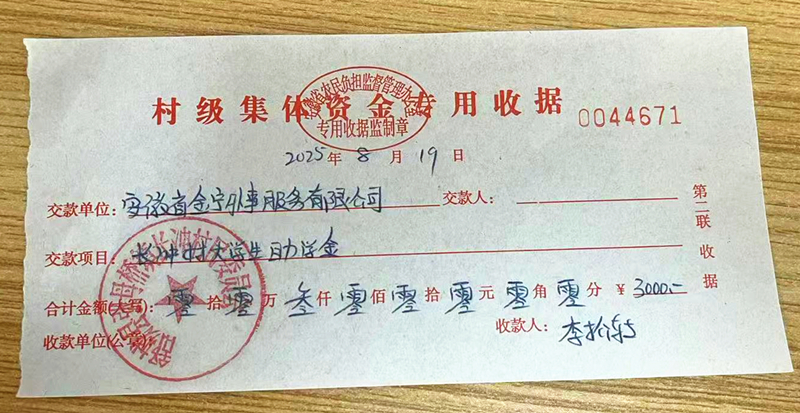 村级集体资金专用收据
安徽省农民负担监督管理办公室
专用收据监制章
0044671
2025年8月19日
交款单位:安徽省金宁外事服务有限公司 交款人:
交款项目:长冲村大学生助学金
合计金额(大写):零拾零万叁仟零佰零拾零元零角零分 ¥3000.-
收款单位(公章): 收款人:
第二联 收据